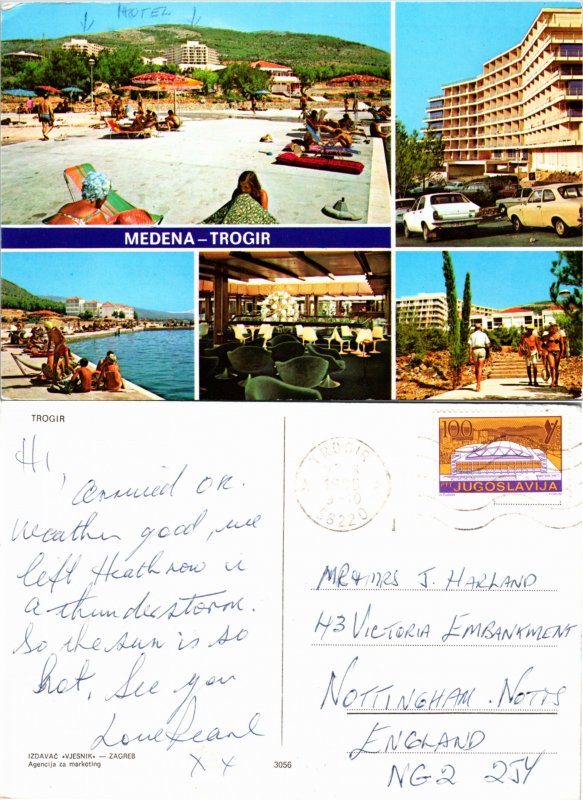 HOTEL
MEDENA – TROGIR
TROGIR
Hi,
arrived OK.
Weather good, we
left Heathrow in
a thunderstorm.
So the sun is so
hot, See you
Love Pearl
x x
IZDAVAČ »VJESNIK« — ZAGREB
Agencija za marketing
3056
TROGIR
58220
100
PTT JUGOSLAVIJA
MR & MRS J. HARLAND
43 VICTORIA EMBANKMENT
NOTTINGHAM. NOTTS
ENGLAND
NG2 2JY